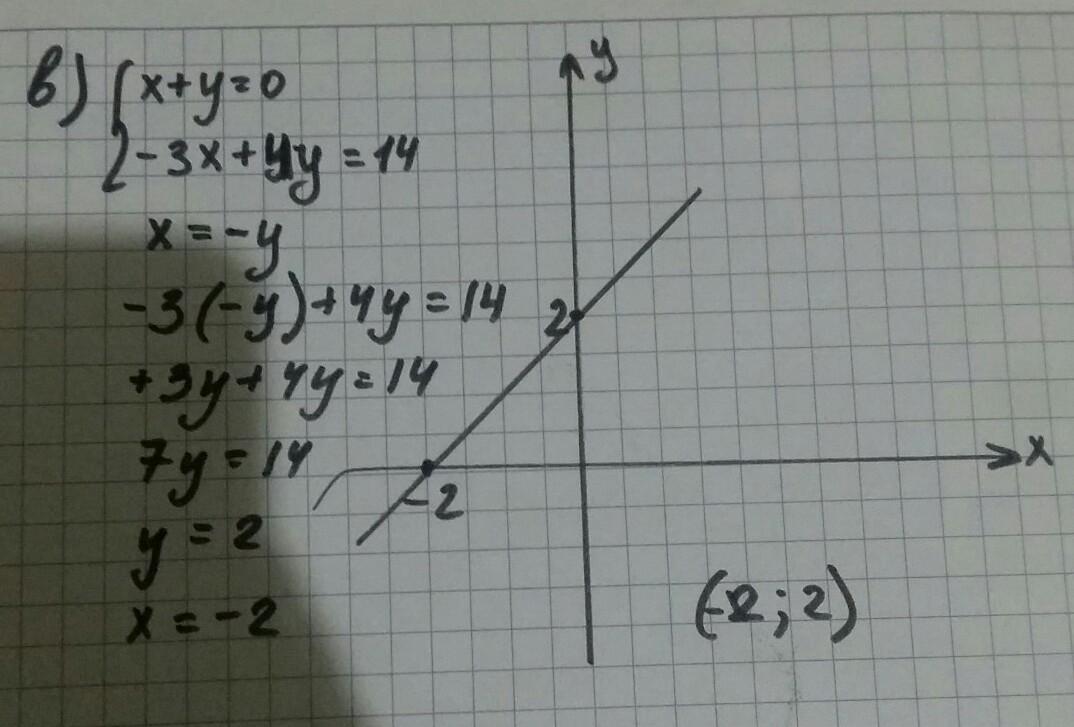 в) { x+y=0
-3x+4y=14
x=-y
-3(-y)+4y=14
+3y+4y=14
7y=14
y=2
x=-2
y
2
x
-2
(-2;2)